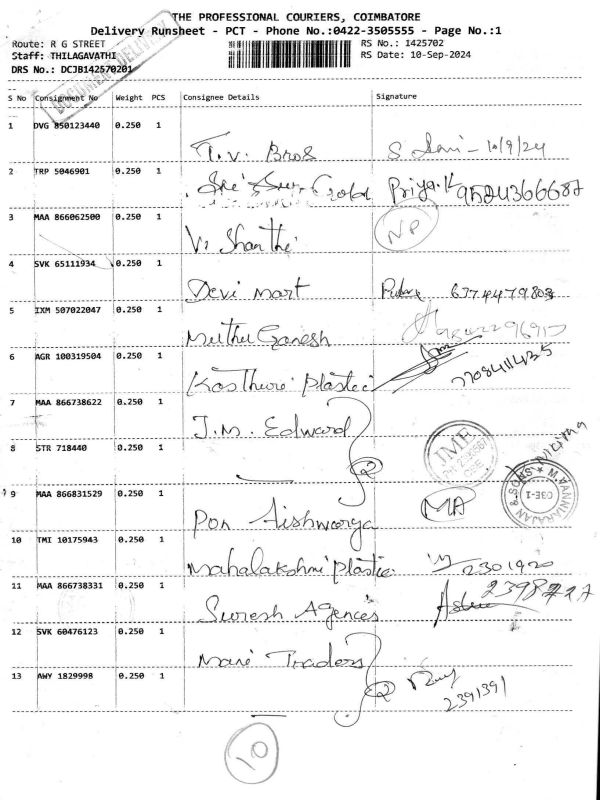 THE PROFESSIONAL COURIERS, COIMBATORE
Delivery Runsheet - PCT - Phone No.:0422-3505555 - Page No.:1
Route: R G STREET
RS No.: 1425702
Staff: THILAGAVATHI
RS Date: 10-Sep-2024
DRS No.: DCJB142570201
S No Consignment No Weight PCS Consignee Details Signature
1 DVG 850123440 0.250 1
T.V. Bros 10/9/24
2 TRP 5046901 0.250 1
Sri Priya.K 9524366687
3 MAA 866062500 0.250 1
V. Shanthi NP
4 SVK 65111934 0.250 1
Devi Mart 6374479803
5 IXM 507022047 0.250 1
Muthu Ganesh
6 AGR 100319504 0.250 1
Kasthuri Plastic
7 MAA 866738622 0.250 1
J.M. Edward
8 STR 718440 0.250 1
2
JME
M.VANNIARAJAN & SONS
9 MAA 866831529 0.250 1
Pon Aishwarya MA
10 TMI 10175943 0.250 1
Mahalakshmi Plastic 2301920
11 MAA 866738331 0.250 1
Suresh Agences
12 SVK 60476123 0.250 1
Mari Traders
13 AWY 1829998 0.250 1
2 2391391
10